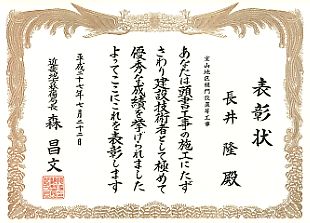 表彰状
長井 隆 殿
宝山地区樋門設置等工事
あなたは頭書工事の施工にたず
さわり建設技術者として極めて
優秀な成績を挙げられました
よってここにこれを表彰します
平成二十七年七月二十二日
近畿地方整備局長 森 昌文